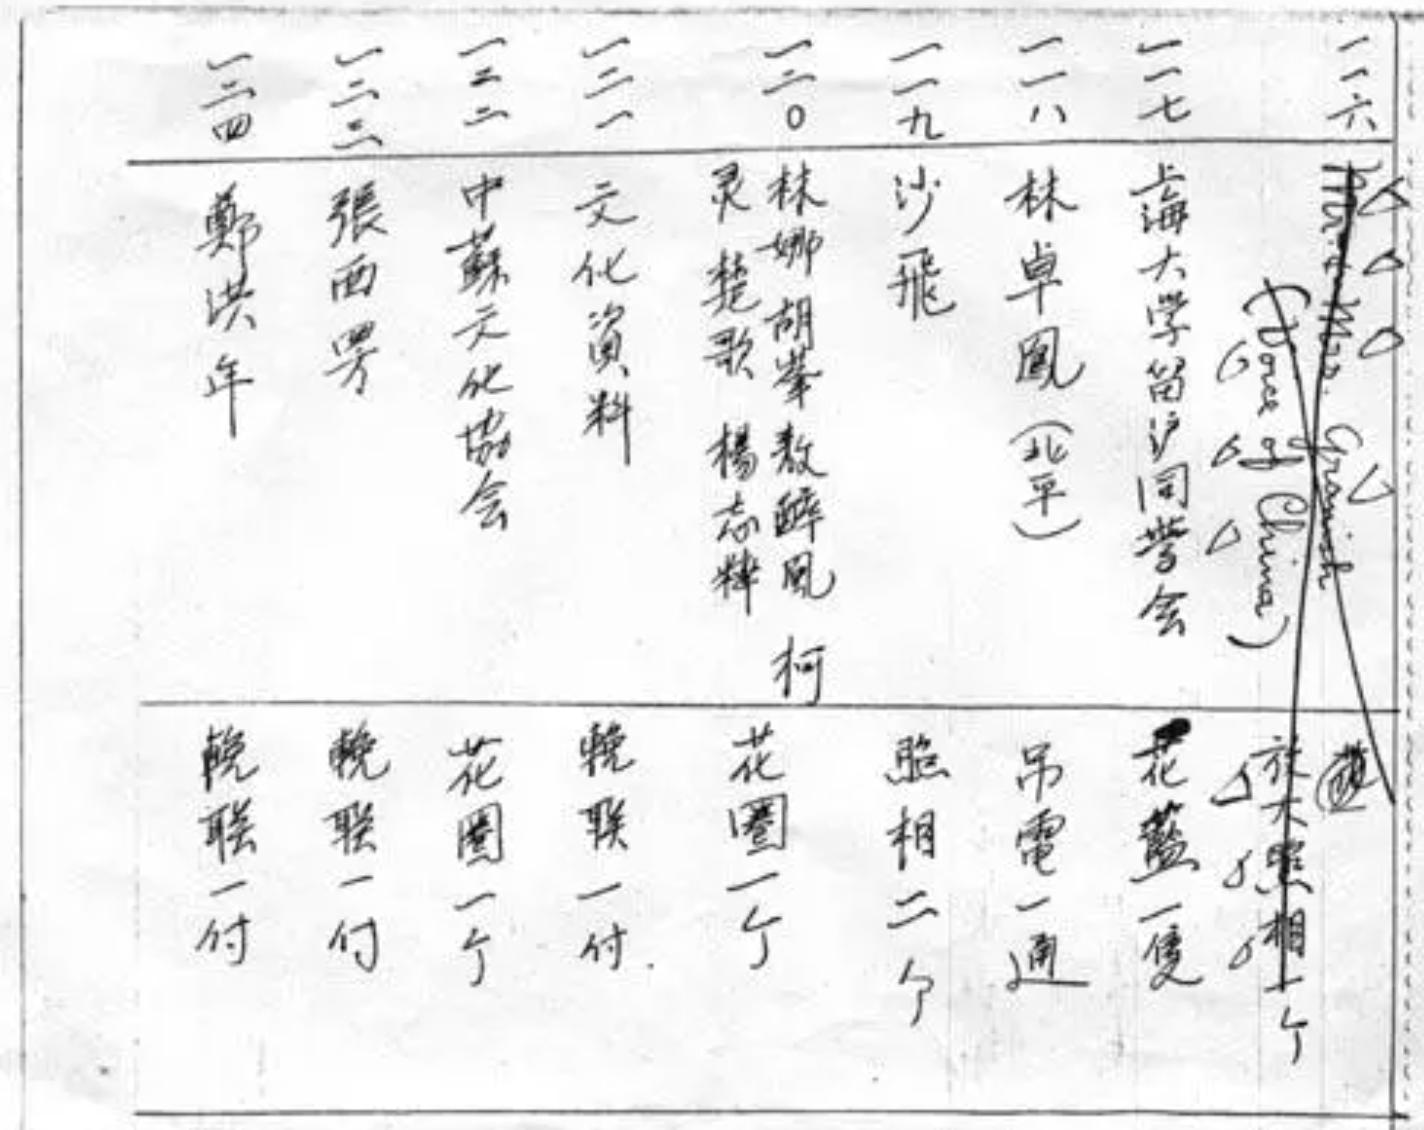 一一六
Mr. & Mrs. Granich
(Voice of China)
放大照相一个
一一七
上海大学留沪同学会
花籃一隻
一一八
林卓鳳（北平）
吊電一通
一一九
沙飛
照相二个
一二〇
林娜 胡峯 敖醉鳳 柯
灵 楚歌 楊志粹
花圈一个
一二一
文化資料
輓联一付
一二二
中蘇文化協会
花圈一个
一二三
張西曼
輓联一付
一二四
鄭洪年
輓联一付